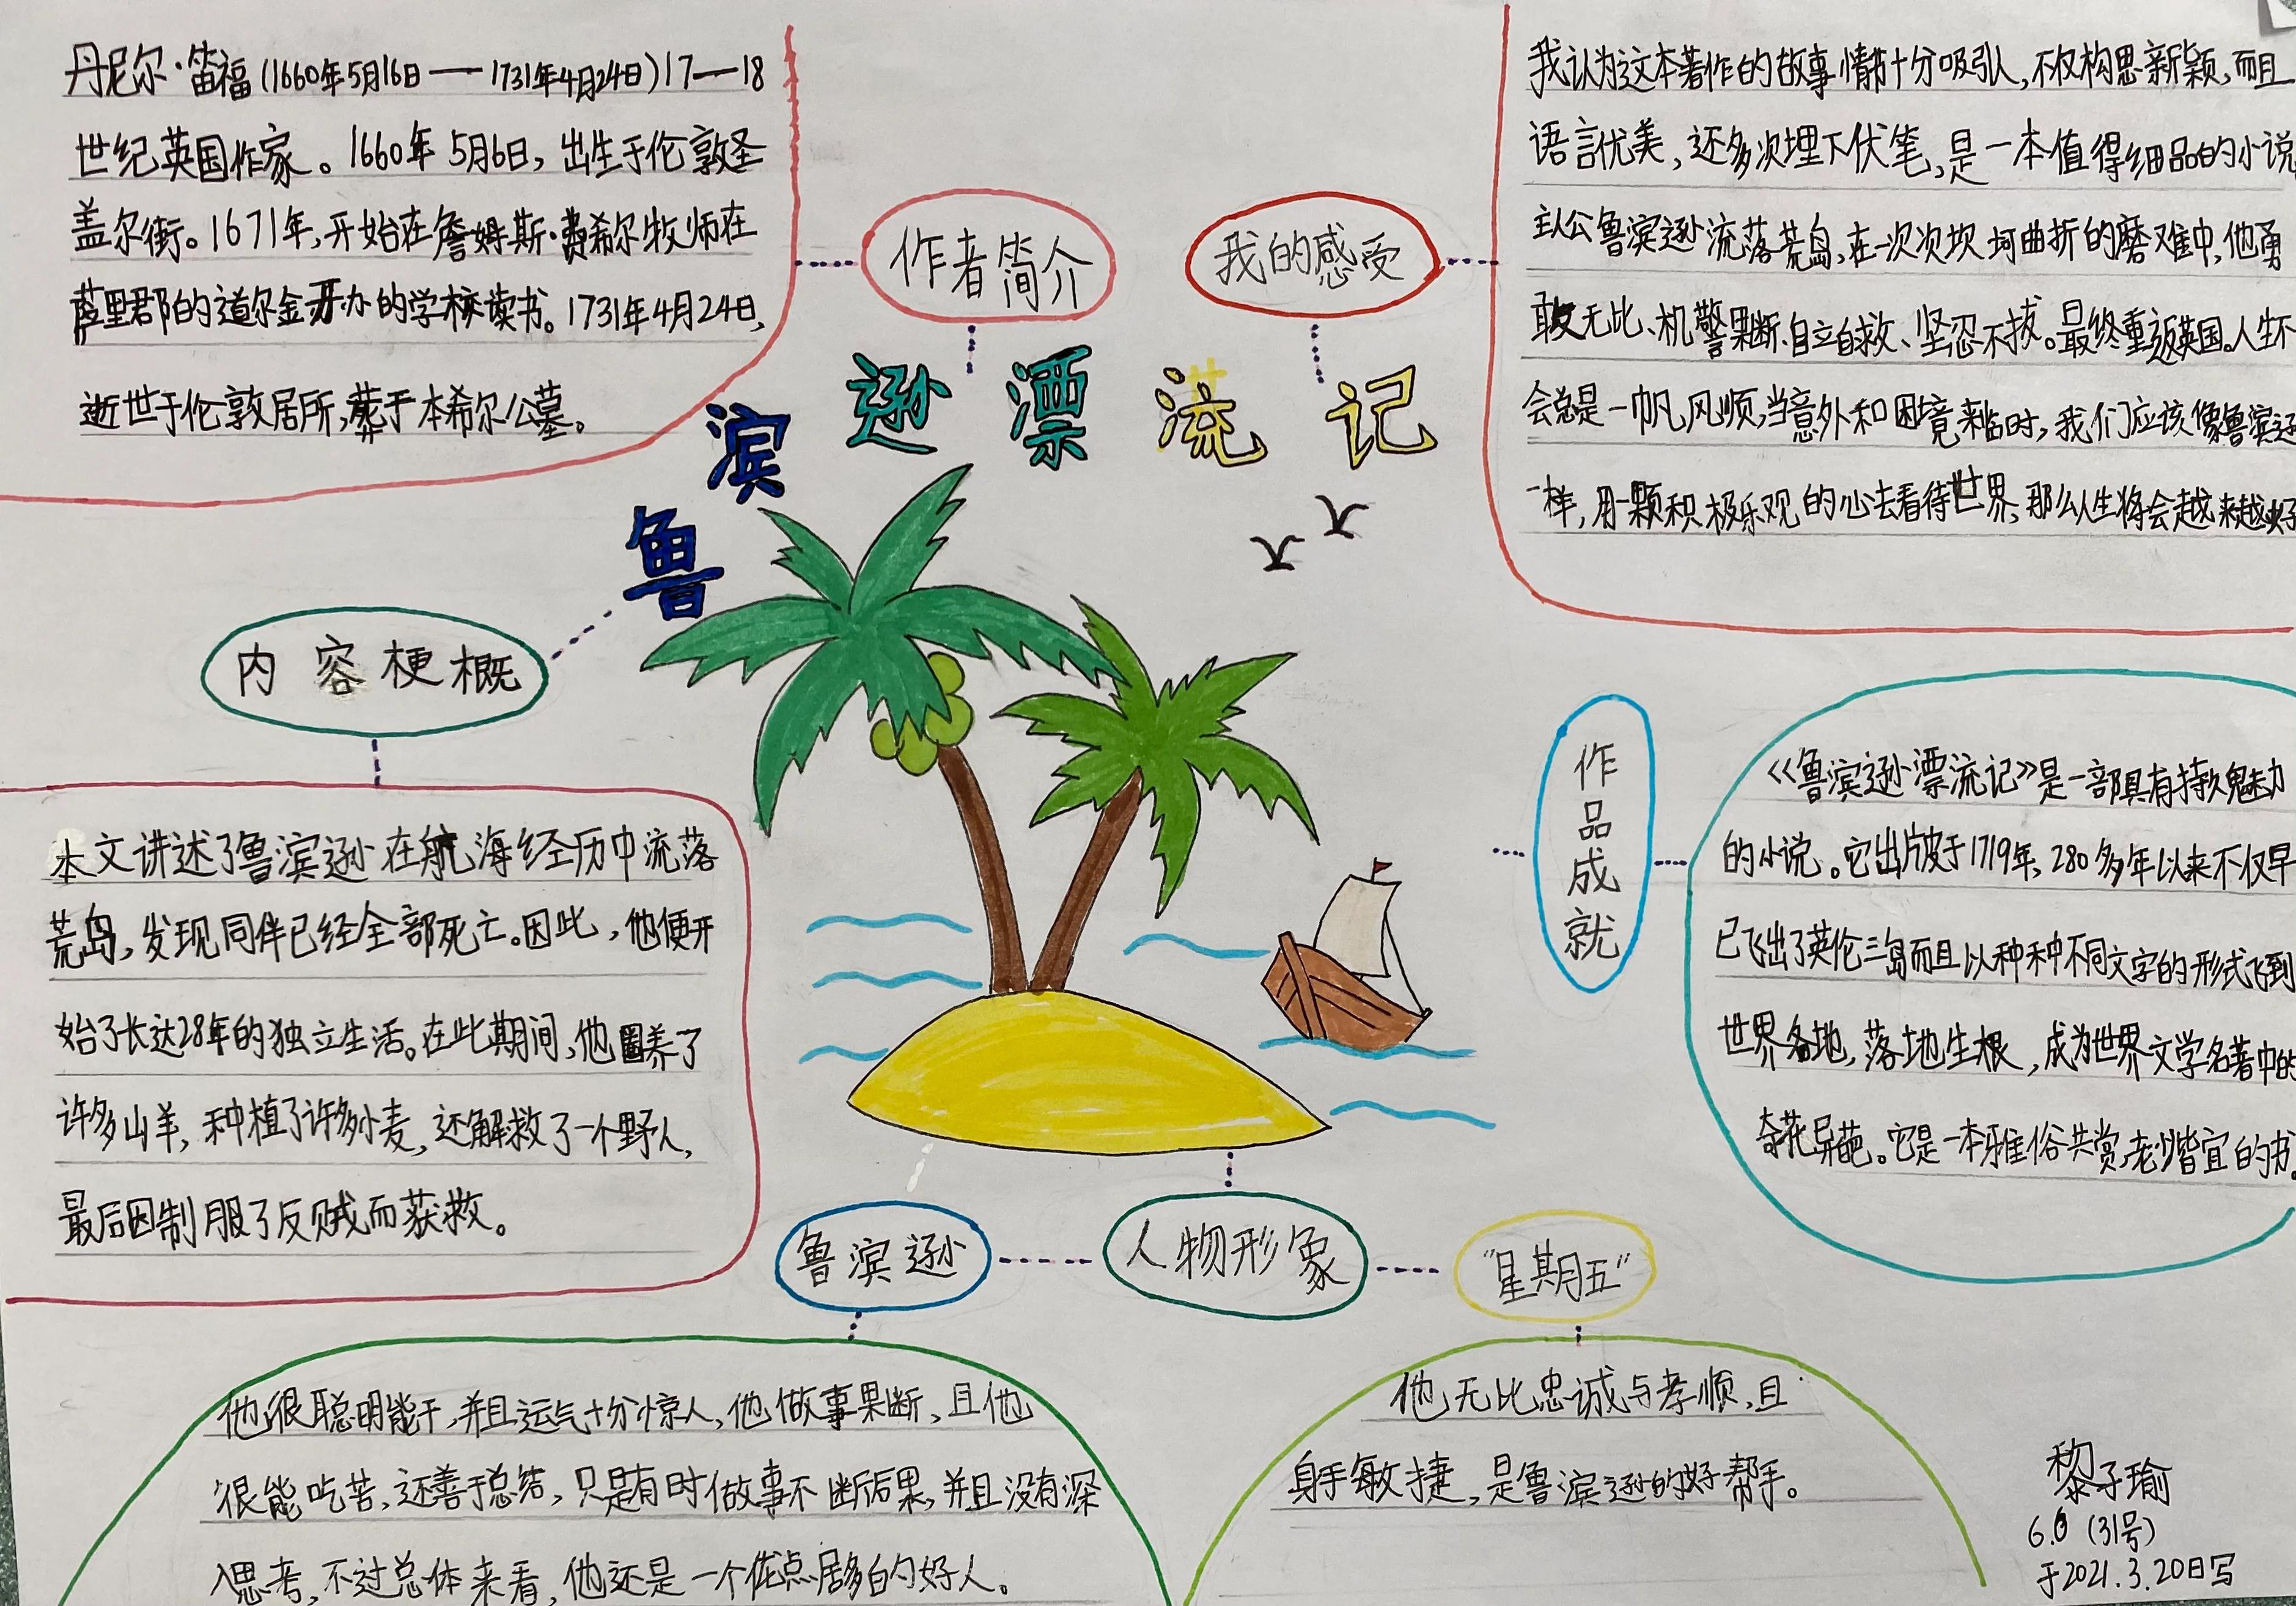 丹尼尔·笛福(1660年5月16日——1731年4月24日)17—18
世纪英国作家。1660年5月6日,出生于伦敦圣
盖尔街。1671年,开始在詹姆斯·费希尔牧师在
萨里郡的道尔金开办的学校读书。1731年4月24日,
逝世于伦敦居所,葬于本希尔公墓。
作者简介
我的感受
我认为这本著作的故事情节十分吸引人,不仅构思新颖,而且
语言优美,还多次埋下伏笔,是一本值得细品的小说
主人公鲁滨逊流落荒岛,在一次次坎坷曲折的磨难中,他勇
敢无比、机警果断、自立自救、坚忍不拔。最终重返英国。人生不
会总是一帆风顺,当意外和困境来临时,我们应该像鲁滨逊
一样,用一颗积极乐观的心去看待世界,那么人生将会越来越好
鲁滨逊漂流记
内容梗概
本文讲述了鲁滨逊在航海经历中流落
荒岛,发现同伴已经全部死亡。因此,他便开
始了长达28年的独立生活。在此期间,他圈养了
许多山羊,种植了许多小麦,还解救了一个野人,
最后因制服了反贼而获救。
作品成就
《鲁滨逊漂流记》是一部具有持久魅力
的小说。它出版于1719年,280多年以来不仅早
已飞出了英伦三岛而且以种种不同文字的形式飞到
世界各地,落地生根,成为世界文学名著中的
奇花异葩。它是一本雅俗共赏,老少皆宜的书。
鲁滨逊
人物形象
“星期五”
他很聪明能干,并且运气十分惊人,他做事果断,且他
很能吃苦,还善于总结,只是有时做事不断后果,并且没有深
入思考,不过总体来看,他还是一个优点居多的好人。
他无比忠诚与孝顺,且
身手敏捷,是鲁滨逊的好帮手。
黎子瑜
(31号)
于2021.3.20日写